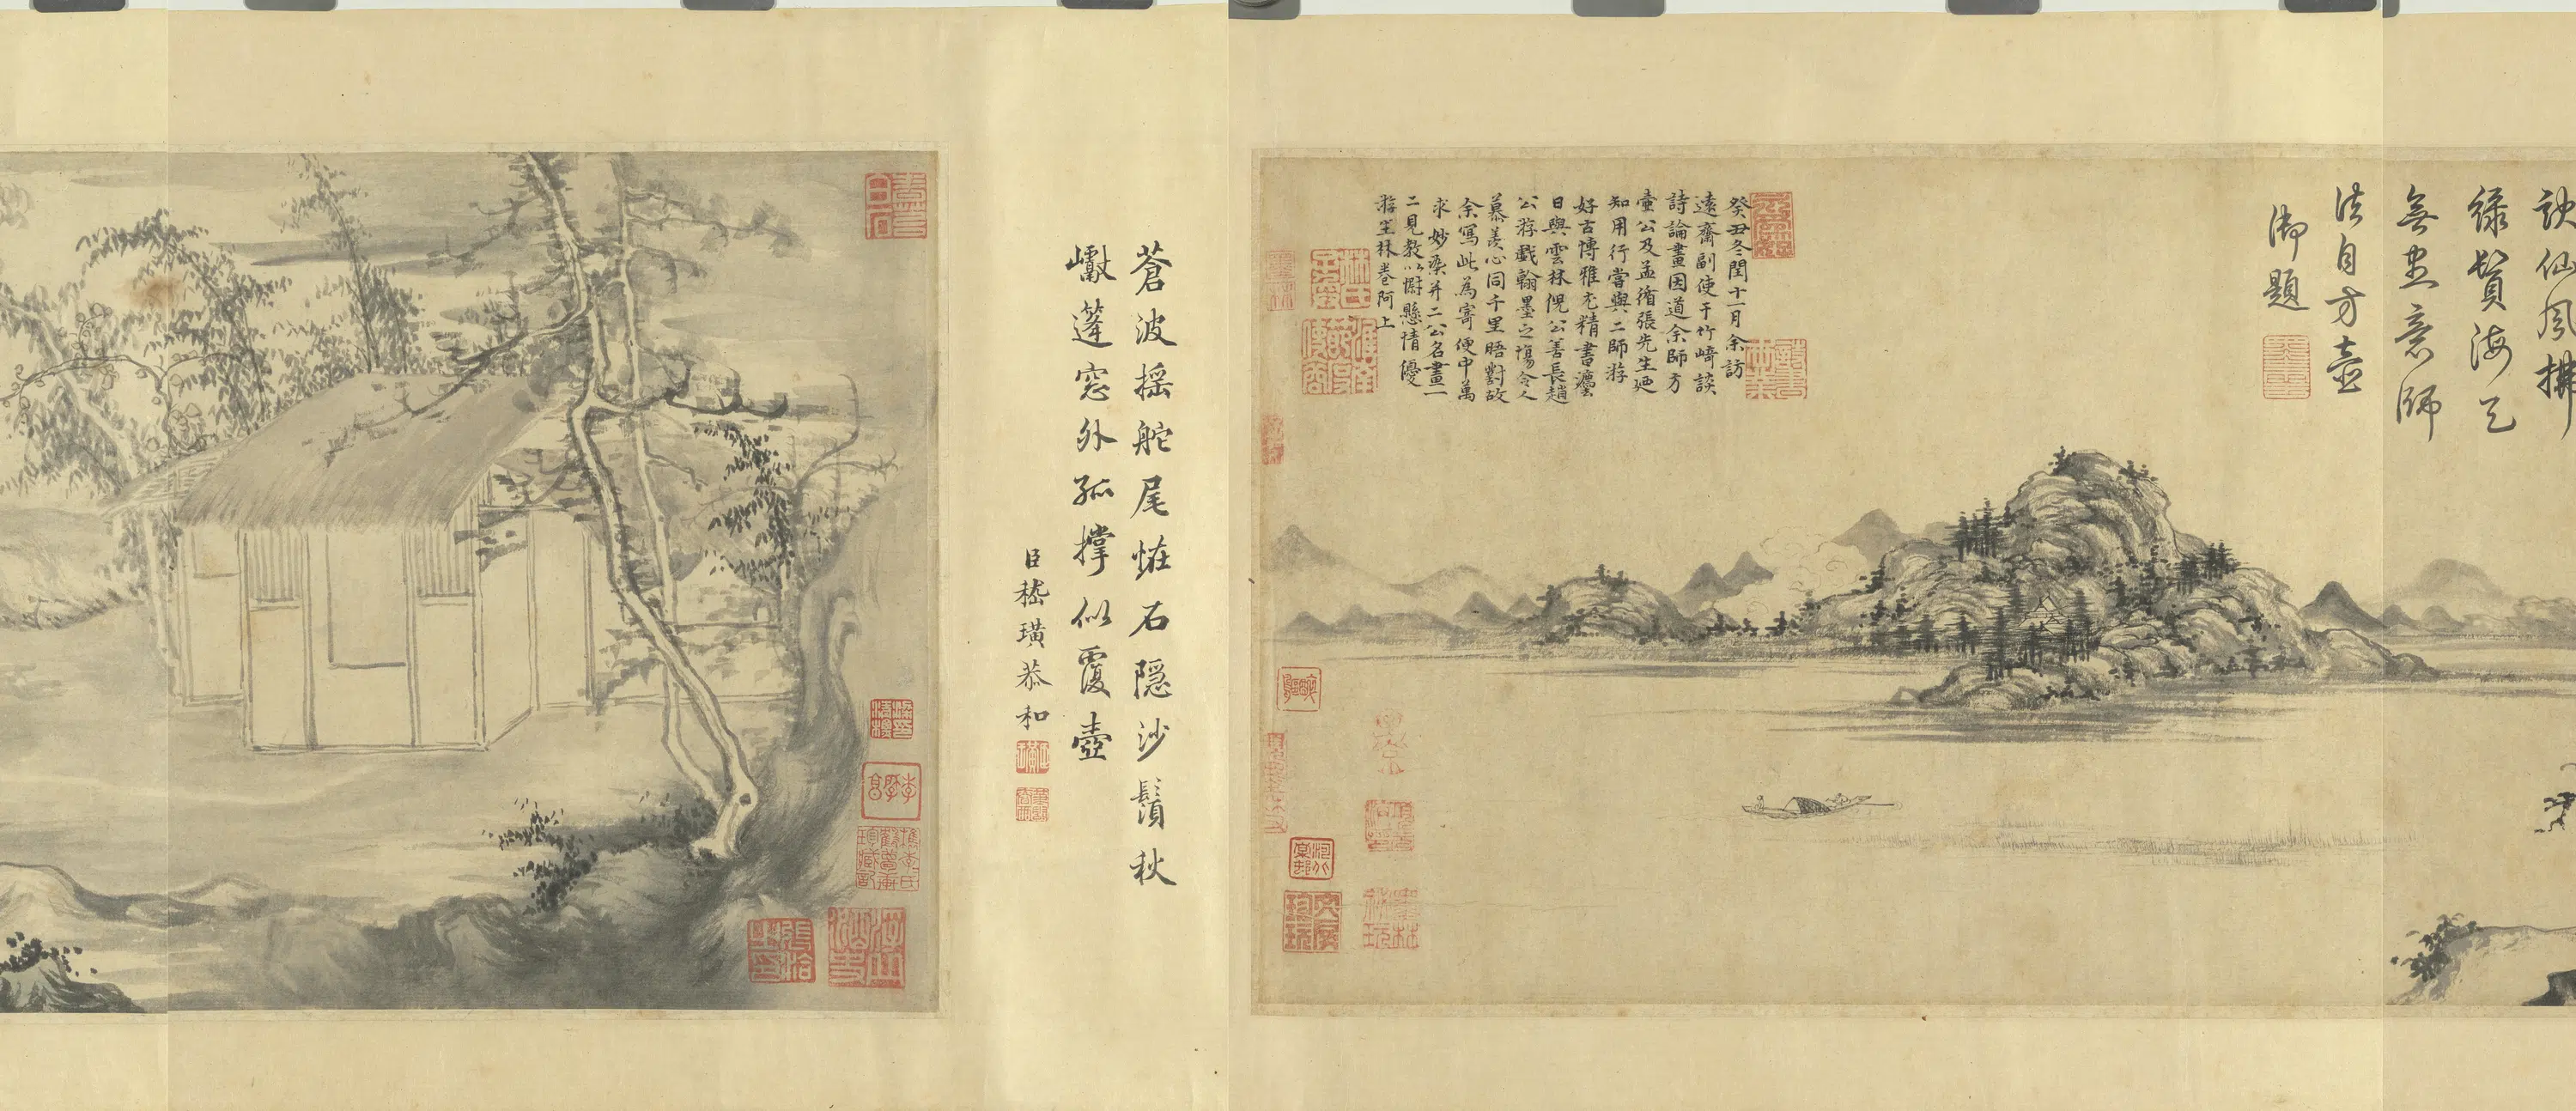 訣仙風拂
綠鬢海天
無盡意師
法自方壺
御題
癸丑冬閏十一月余訪
遠齋副使于竹崎談
詩論畫因道余師方
壺公及孟循張先生廼
知用行嘗與二師游
好古博雅尤精書灋
日與雲林倪公善長趙
公游戲翰墨之場令人
慕羨心同千里晤對故
余寫此為寄便中萬
求妙染并二公名畫一
二見教以慰懸情優
游笙林卷阿上
蒼波搖舵尾恠石隱沙鬚秋
巘篷窓外孤撐似覆壺
臣嵇璜恭和